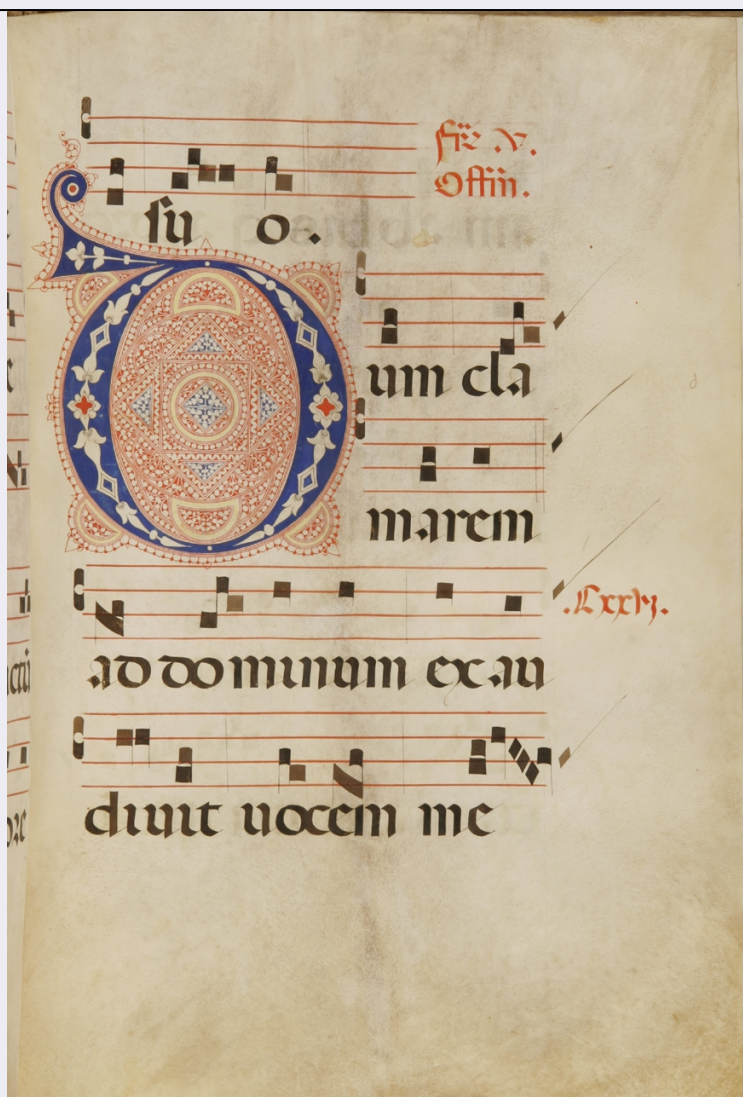 su o.
Offm̄.
Dum cla
marem
ad dominum exau
diuit uocem me